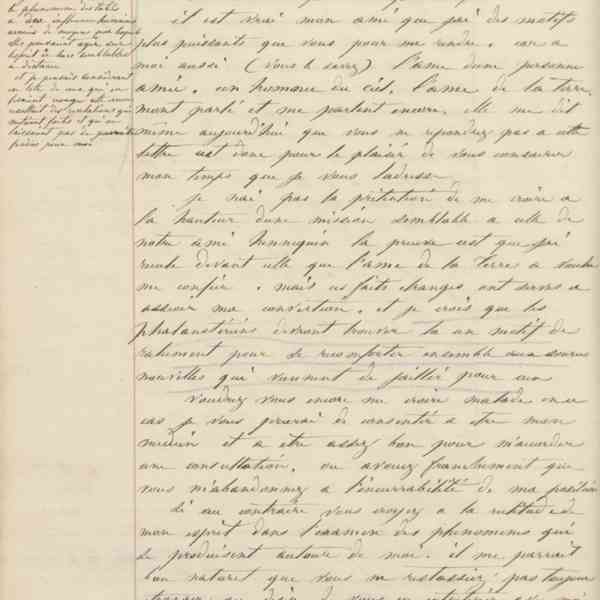 le phénomène des table
a une influence humaine
armés de moyens par lesquels
ils pensaient agir sur
l'esprit de leurs semblables
a distance
et je pouvais considérant
en tête de ceux qui en
feraient usage elle-même
des révélations qui
m'étaient faites et qui ne
laissaient pas de
pour moi
il est vrai mon ami que j'ai des motifs
plus puissants que vous pour me rendre. car a
moi aussi (vous le savez) l'ame dune personne
amie, un homme du ciel, l'ame de la terre
mont parlé et me parlent encore. elle me dit
même aujourd'hui que vous ne repondrez pas a cette
lettre c'est donc pour le plaisir de vous consacrer
mon temps que je vous l'adresse
je n'ai pas la prétention de me croire a
la hauteur dune mission semblable a celle de
notre ami hennequin la preuve est que j'ai
reculé devant celle que l'ame de la terre a voulu
me confier. mais ces faits étranges ont servis a
asseoir ma conviction. et je crois que les
phalanstériens devront trouver la un motif de
raliement pour se reconforter ensemble aux sources
nouvelles qui viennent de jaillir pour eux
voudrez vous encore me croire malade en ce
cas je vous prierai de consentir a etre mon
médecin et a etre assez bon pour m'accorder
une consultation. ou avouez franchement que
vous m'abandonnez a l'incurrabilité de ma position
si au contraire vous croyez a la rectitude de
mon esprit dans l'examen des phenomenes qui
se produisent autour de moi. il me parrait
bon naturel que vous me restassiez pas toujours
au désir de vous